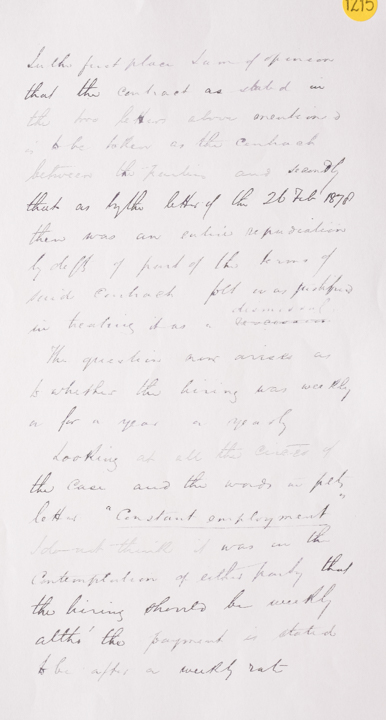 1215
In the first place I am of opinion
that the contract as stated in
the two letters above mentioned
is to be taken as the contract
between the parties and secondly
that as by the letter of the 26 Feb 1878
there was an entire repudiation
by deft of part of the terms of
said contract pltf was justified
in treating it as a dismissal
The question now arises as
to whether the hiring was weekly
or for a year or yearly
Looking at all the circes of
the case and the words in pltfs
letter "Constant employment"
I do not think it was in the
contemplation of either party that
the hiring should be weekly
altho' the payment is stated
to be after a weekly rate